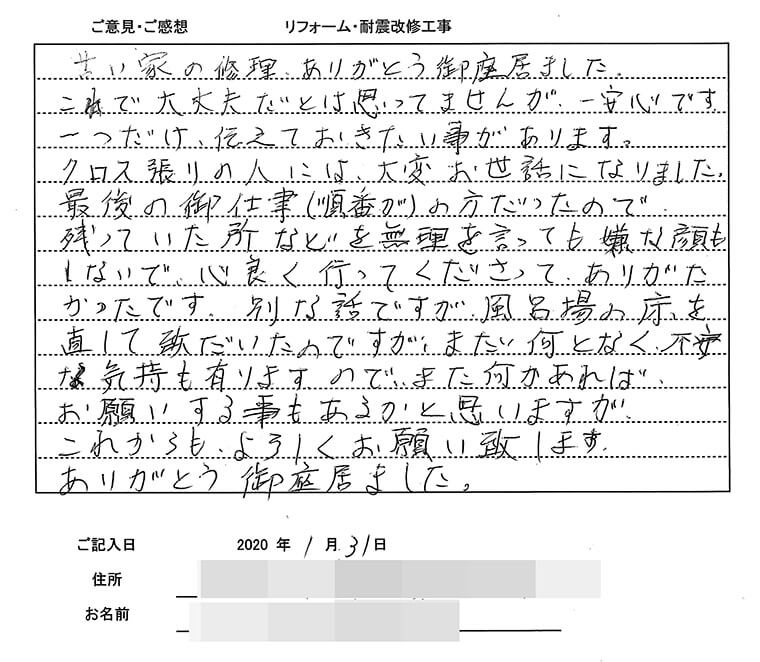 ご意見・ご感想 リフォーム・耐震改修工事
古い家の修理、ありがとう御座居ました。
これで大丈夫だとは思ってませんが、一安心です
一つだけ、伝えておきたい事があります。
クロス張りの人には、大変お世話になりました。
最後の御仕事(順番が)の方だったので
残っていた所などを無理を言っても嫌な顔も
しないで、心良く行ってくださって、ありがた
かったです。別な話ですが、風呂場の床、を
直して致だいたのですが、まだ何となく、不安
な気持も有りますので、また何かあれば、
お願いする事もあるかと思いますが、
これからも、よろしくお願い致します。
ありがとう御座居ました。
ご記入日 2020 年 1 月 31 日
住所
お名前